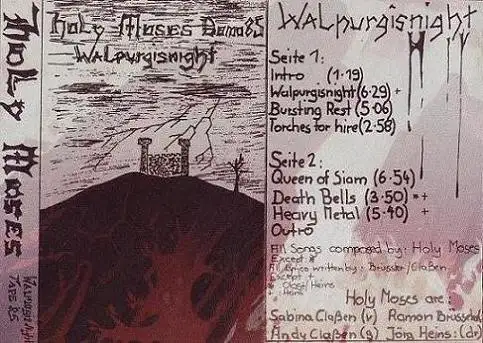 Holy Moses
Walpurgisnight
Tapes 85
Holy Moses Demo85
Walpurgisnight
Walpurgisnight
Seite 1:
Intro (1·19)
Walpurgisnight (6·29) +
Bursting Rest (5·06)
Torches for hire (2·58)
Seite 2:
Queen of Siam (6·54)
Death Bells (3·50) *+
Heavy Metal (5·40) +
Outro
All Songs composed by: Holy Moses
Except *
All Lyrics written by: Brüssler/Claßen
Except +
Heins
Holy Moses are:
Sabina Claßen (v) Ramon Brüssler
Andy Claßen (g) Jörg Heins: (dr)